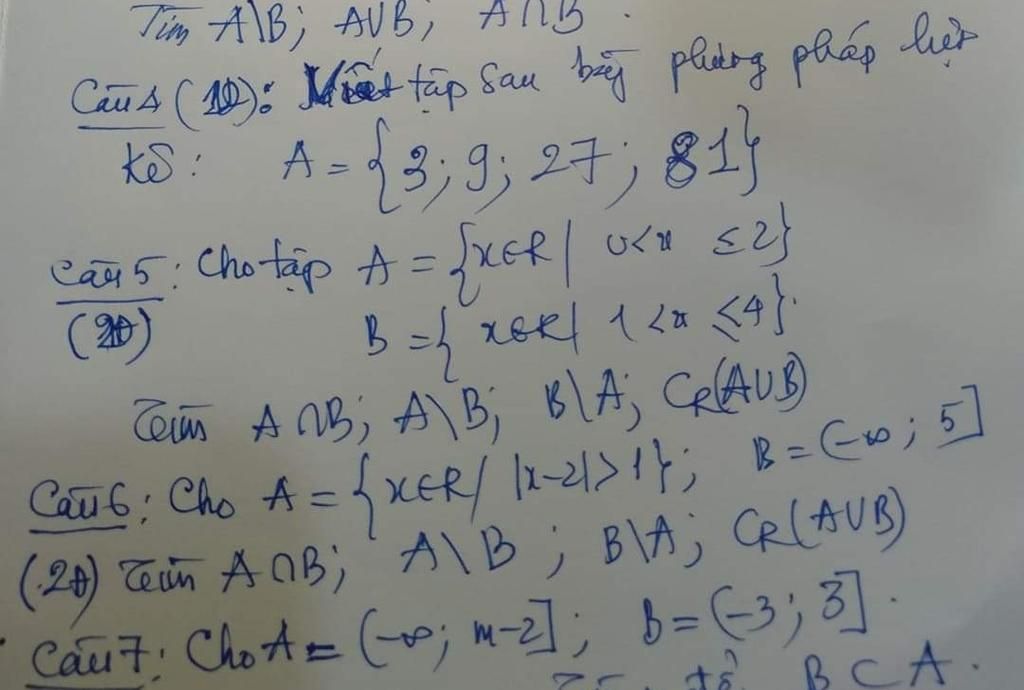 Tìm A\B; A∪B; A∩B.
Câu 4 (1đ): Viết tập sau bằng phương pháp liệt
kê: A = {3; 9; 27; 81}
Câu 5: Cho tập A = {x∈R | 0<x ≤2}
(2đ) B = { x∈R | 1<x ≤4}.
Tìm A∩B; A\B; B\A; CR(A∪B)
Câu 6: Cho A = {x∈R/ |x-2|>1}; B = (-∞; 5]
(2đ) Tìm A∩B; A\B; B\A; CR(A∪B)
Câu 7: Cho A = (-∞; m-2]; B = (-3; 3].
để B ⊂ A.